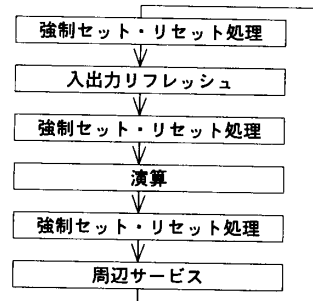 強制セット・リセット処理
入出力リフレッシュ
強制セット・リセット処理
演算
強制セット・リセット処理
周辺サービス